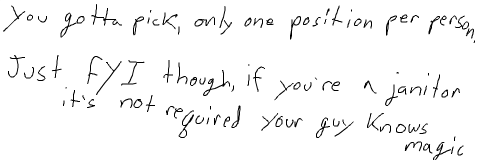 You gotta pick, only one position per person.
Just FYI though, if you're a janitor
it's not required your guy knows
magic